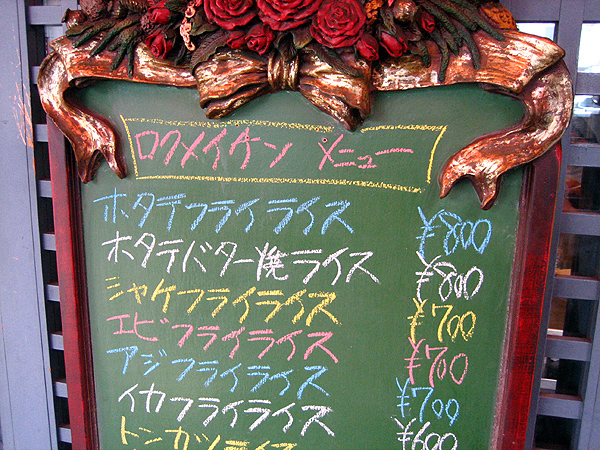 ロクメイカン メニュー
ホタテフライライス ¥800
ホタテバター焼ライス ¥800
シャケフライライス ¥700
エビフライライス ¥700
アジフライライス ¥700
イカフライライス ¥600
トンカツライス